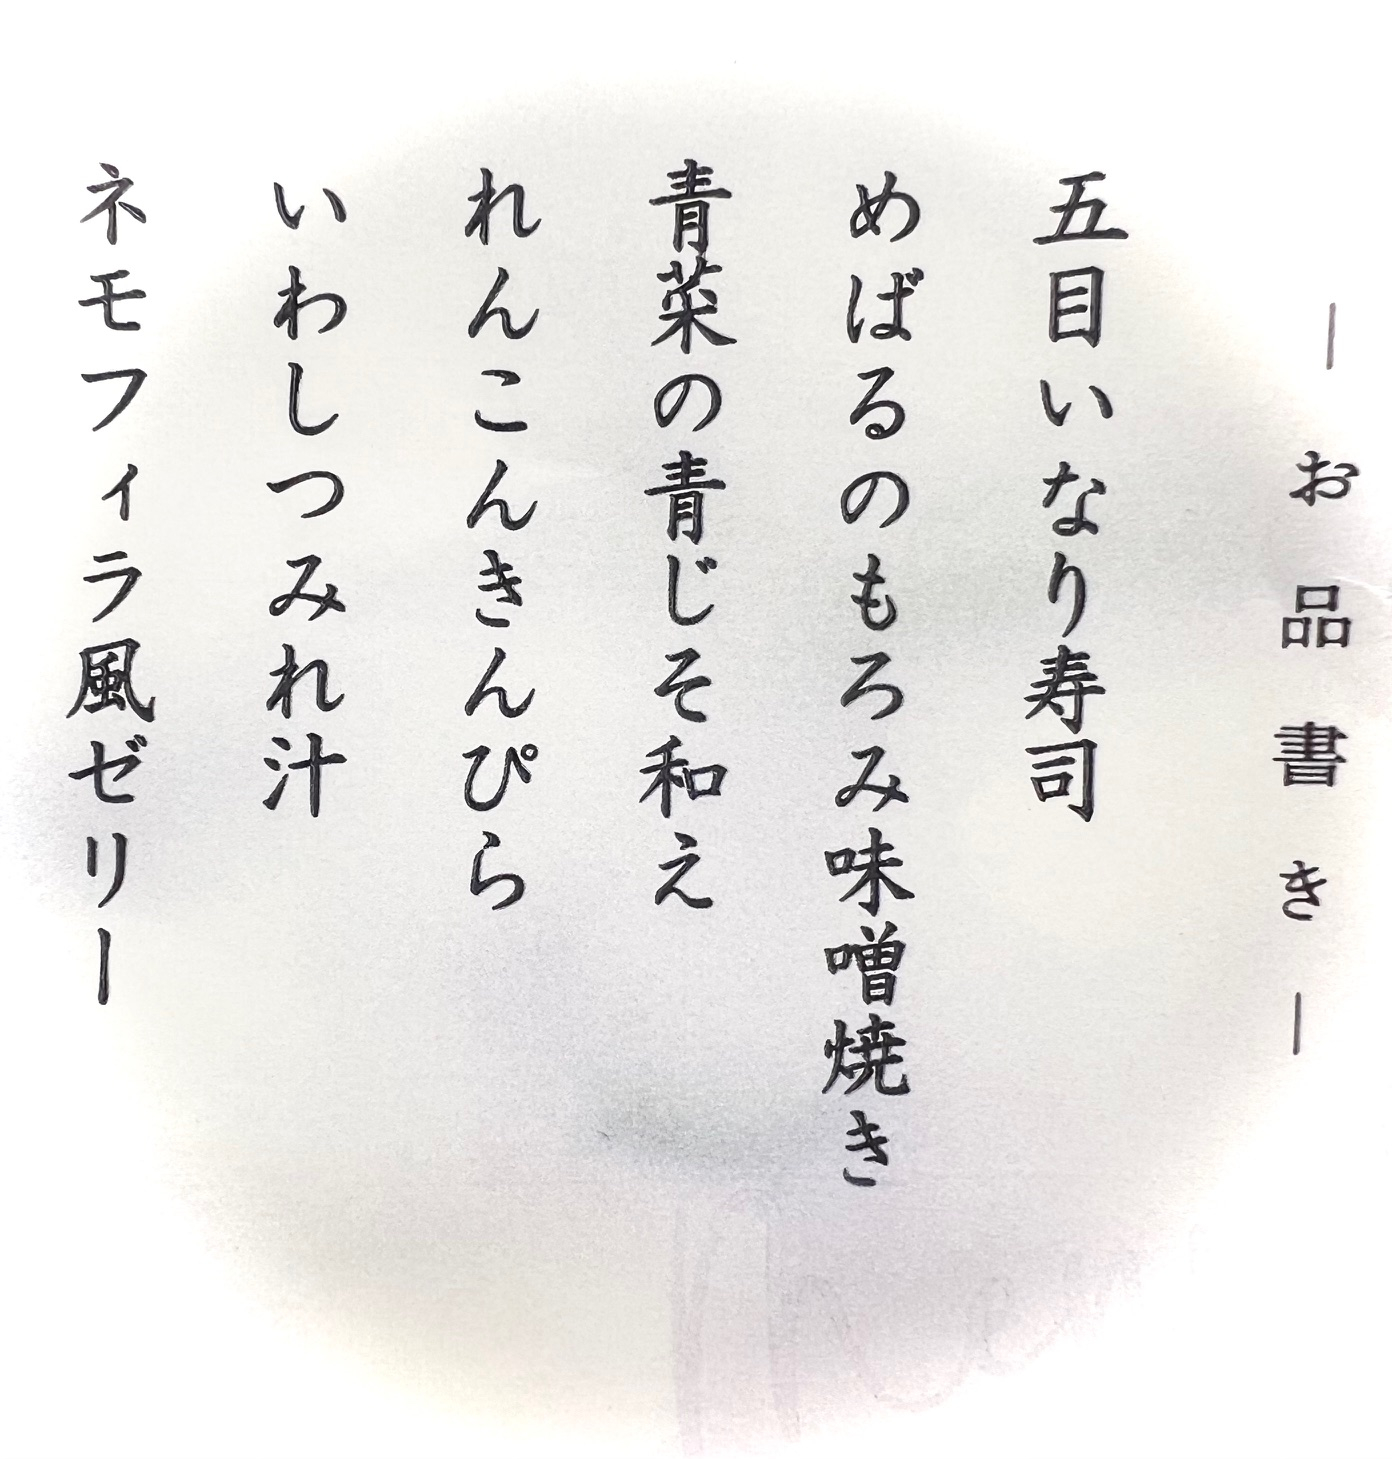 ― お品書き ―
五目いなり寿司
めばるのもろみ味噌焼き
青菜の青じそ和え
れんこんきんぴら
いわしつみれ汁
ネモフィラ風ゼリー